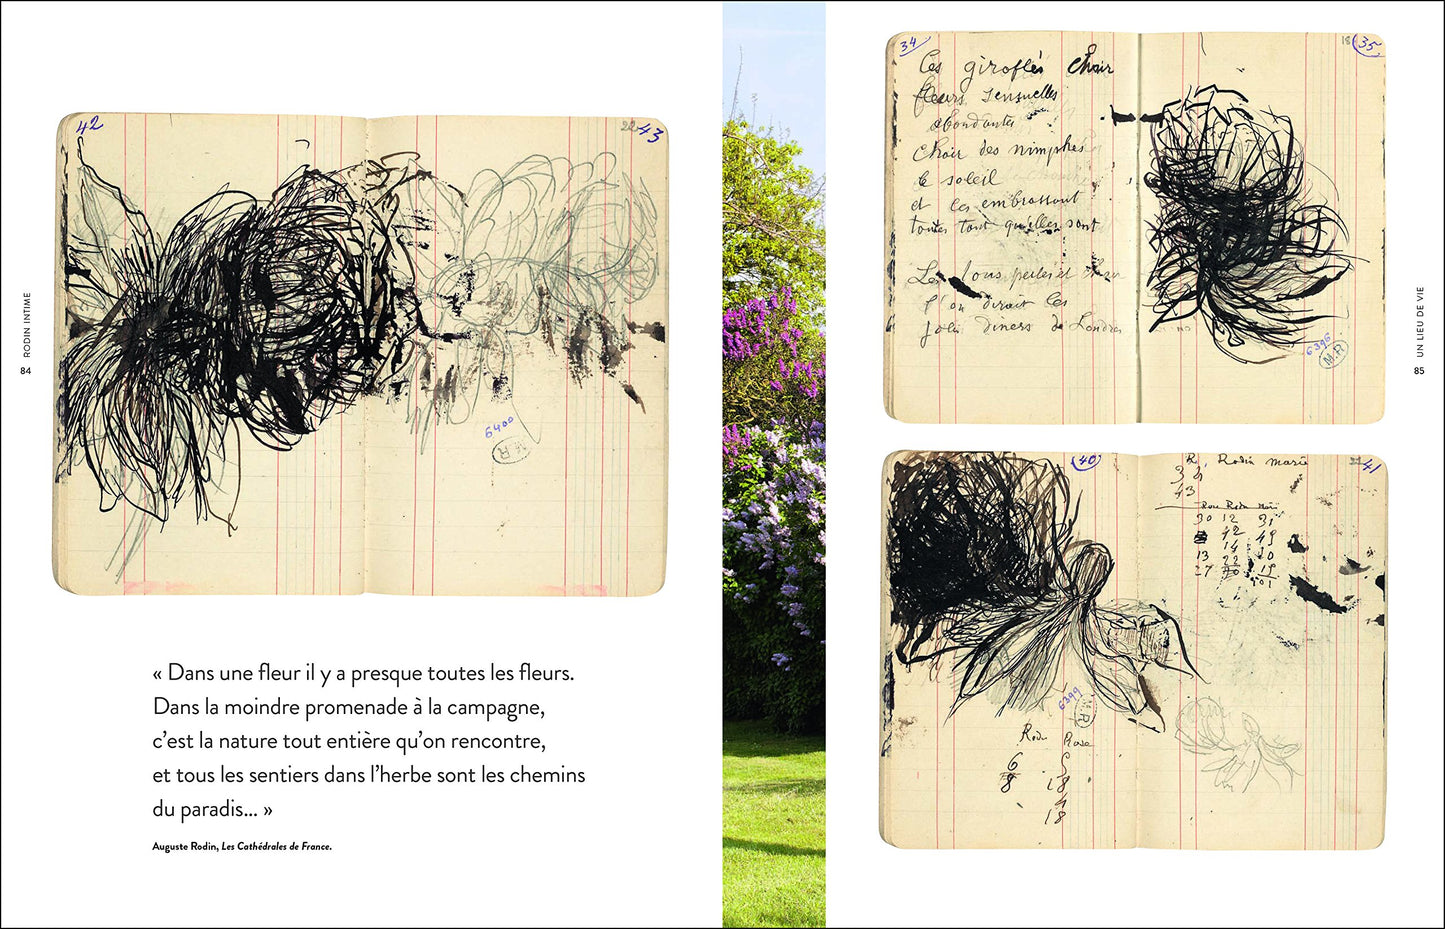 RODIN INTIME
84
42
22 43
6400
M.R
« Dans une fleur il y a presque toutes les fleurs.
Dans la moindre promenade à la campagne,
c’est la nature tout entière qu’on rencontre,
et tous les sentiers dans l’herbe sont les chemins
du paradis... »
Auguste Rodin, Les Cathédrales de France.
34
Ces giroflés chair
fleurs sensuelles
abondantes
chair des nimphes
le soleil
et les embrassant
toutes tant qu'elles sont
Les
l'on dirait les
jolis diners de Londres
18 35
6396
M.R
40
6399
M.R
Rodin Rose
6
8 18
4
18
41
R. Rodin Marie
3
43
Rose Rodin
30 12 31
42 49
14 20
13 22
27 19
101
UN LIEU DE VIE
85